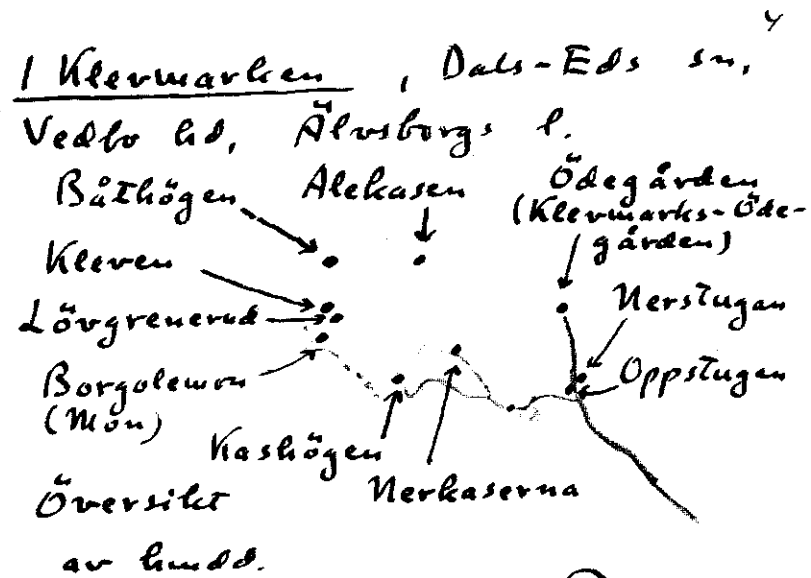 4
I Klevmarken, Dals-Eds sn,
Vedbo hd, Älvsborgs l.
Båthögen
Alekasen
Ödegården
(Klevmarks-Öde-
gården)
Kleven
Nerstugan
Lövgrenerud
Oppstugan
Borgolemon
(Mon)
Kashögen
Nerkaserna
Översikt
av